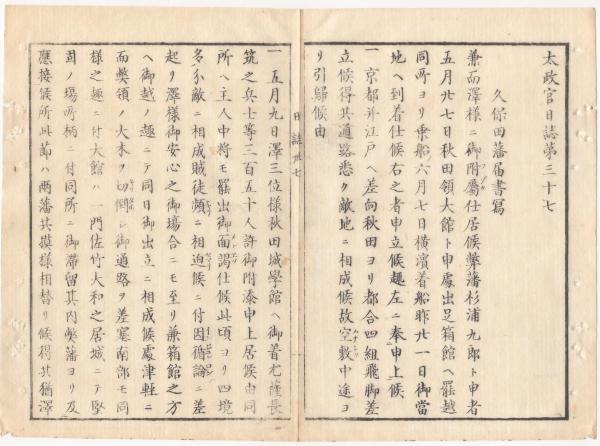 太政官日誌第三十七
久保田藩届書寫
兼而澤様ニ御附屬仕居候弊藩杉浦九郎ト申者
五月廿七日秋田領大館ト申處出足箱館ヘ罷越
同所ヨリ乘船六月七日横濱着船昨廿一日御當
地ヘ到着仕候右之者申立候趣左ニ奉申上候
一京都并江戸ヘ差向秋田ヨリ都合四組飛脚差
立候得共通路悉ク敵地ニ相成候故空敷中途ヨ
リ引歸候由
日誌卅七
一五月九日澤三位様秋田城學館ヘ御着尤薩長
筑之兵士等三百五十人許御附添申上居候由同
所ヘ主人中將モ罷出御面謁仕候此頃ヨリ四境
多分敵ニ相成賊徒頻ニ相迫候ニ付因循論ニ差
起リ澤様御安心之御場合ニモ至リ兼箱館之方
ヘ御越ノ趣ニテ同日御出立ニ相成候處津輕ニ
而弊領ノ大木ヲ切倒シ御通路ヲ差塞南部モ同
様之趣ニ付大館ハ一門佐竹大和之居城ニテ堅
固ノ場所柄ニ付同所ニ御滯留其内弊藩ヨリ及
應接候所此節ハ兩藩共摸様相替リ候得共猶澤